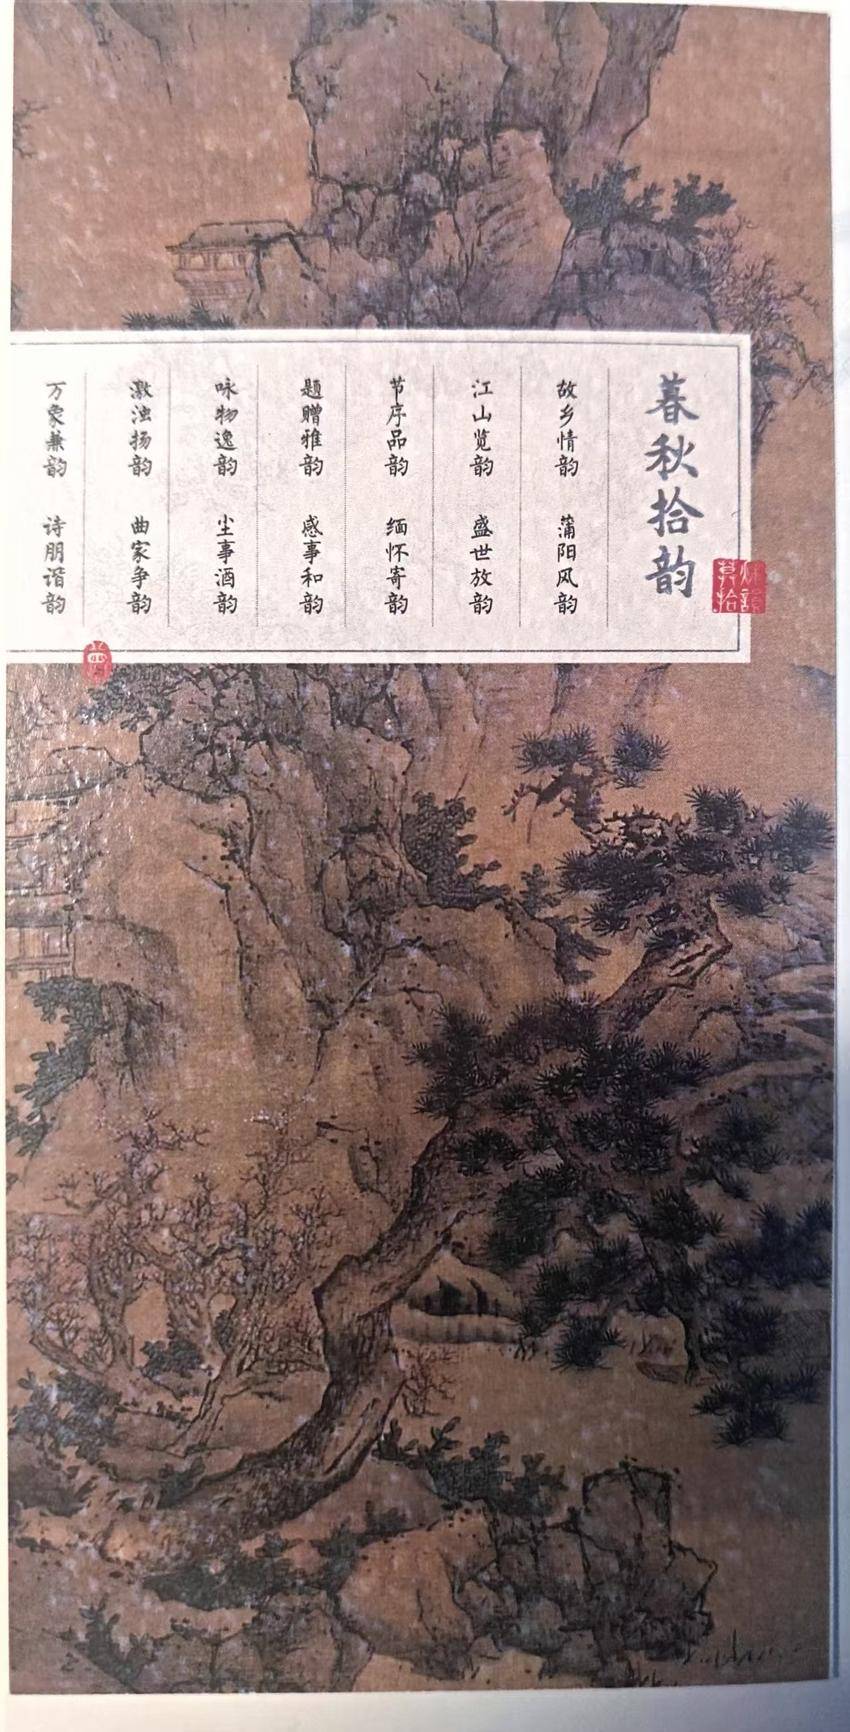 暮秋拾韵
故乡情韵 蒲阳风韵
江山览韵 盛世放韵
节序品韵 缅怀寄韵
题赠雅韵 感事和韵
咏物逸韵 尘事酒韵
激浊扬韵 曲家争韵
万象兼韵 诗朋谐韵